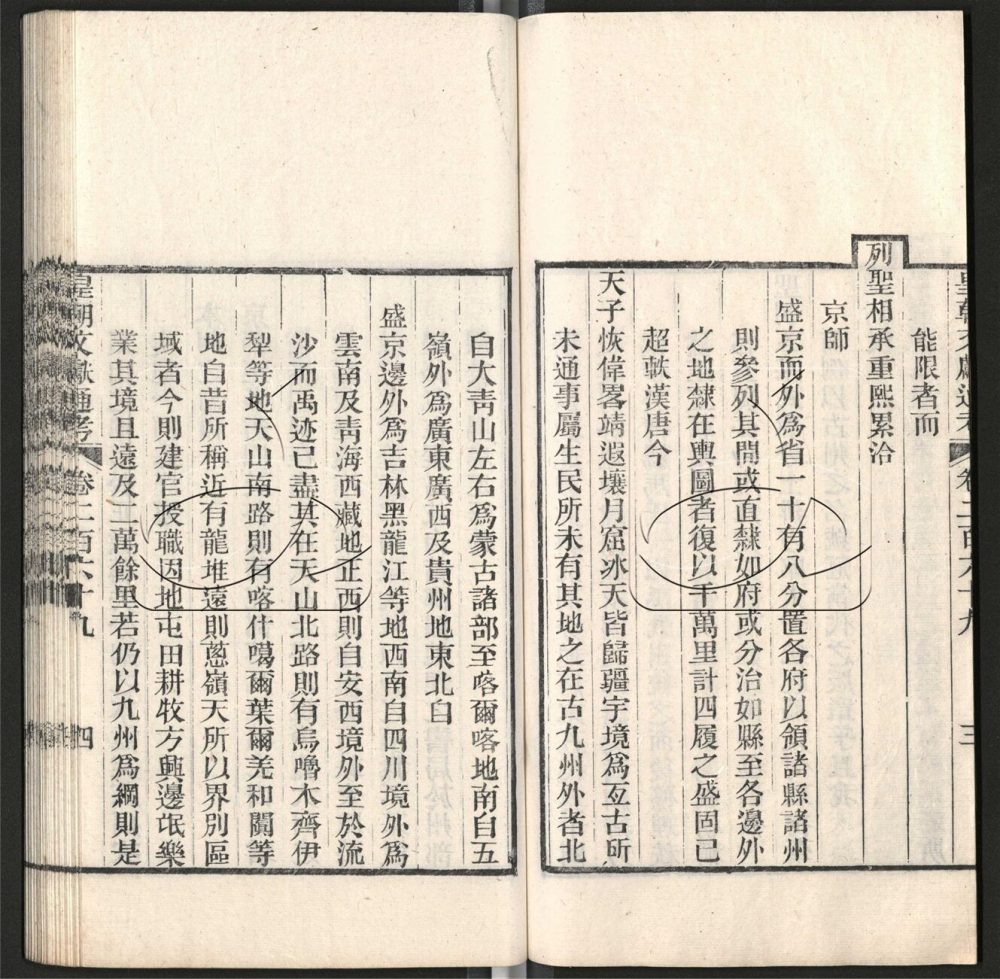 皇朝文獻通考 卷二百六十九 三
能限者而
列聖相承重熙累洽
京師
盛京而外爲省一十有八分置各府以領諸縣諸州
則參列其間或直隸如府或分治如縣至各邊外
之地隸在輿圖者復以千萬里計四履之盛固已
超軼漢唐今
天子恢偉畧靖遐壤月窟冰天皆歸疆宇境爲亙古所
未通事屬生民所未有其地之在古九州外者北
自大靑山左右爲蒙古諸部至喀爾喀地南自五
嶺外爲廣東廣西及貴州地東北自
盛京邊外爲吉林黑龍江等地西南自四川境外爲
雲南及靑海西藏地正西則自安西境外至於流
沙而禹迹已盡其在天山北路則有烏嚕木齊伊
犂等地天山南路則有喀什噶爾葉爾羌和闐等
地自昔所稱近有龍堆遠則蔥嶺天所以界別區
域者今則建官授職因地屯田耕牧方興邊氓樂
業其境且遠及二萬餘里若仍以九州爲綱則是
皇朝文獻通考 卷二百六十九 四